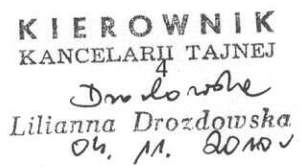 KIEROWNIK
KANCELARII TAJNEJ
4
Drozdowska
Lilianna Drozdowska
04. 11. 2010 r